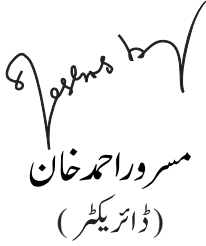 مسرور احمد خان
(ڈائریکٹر)